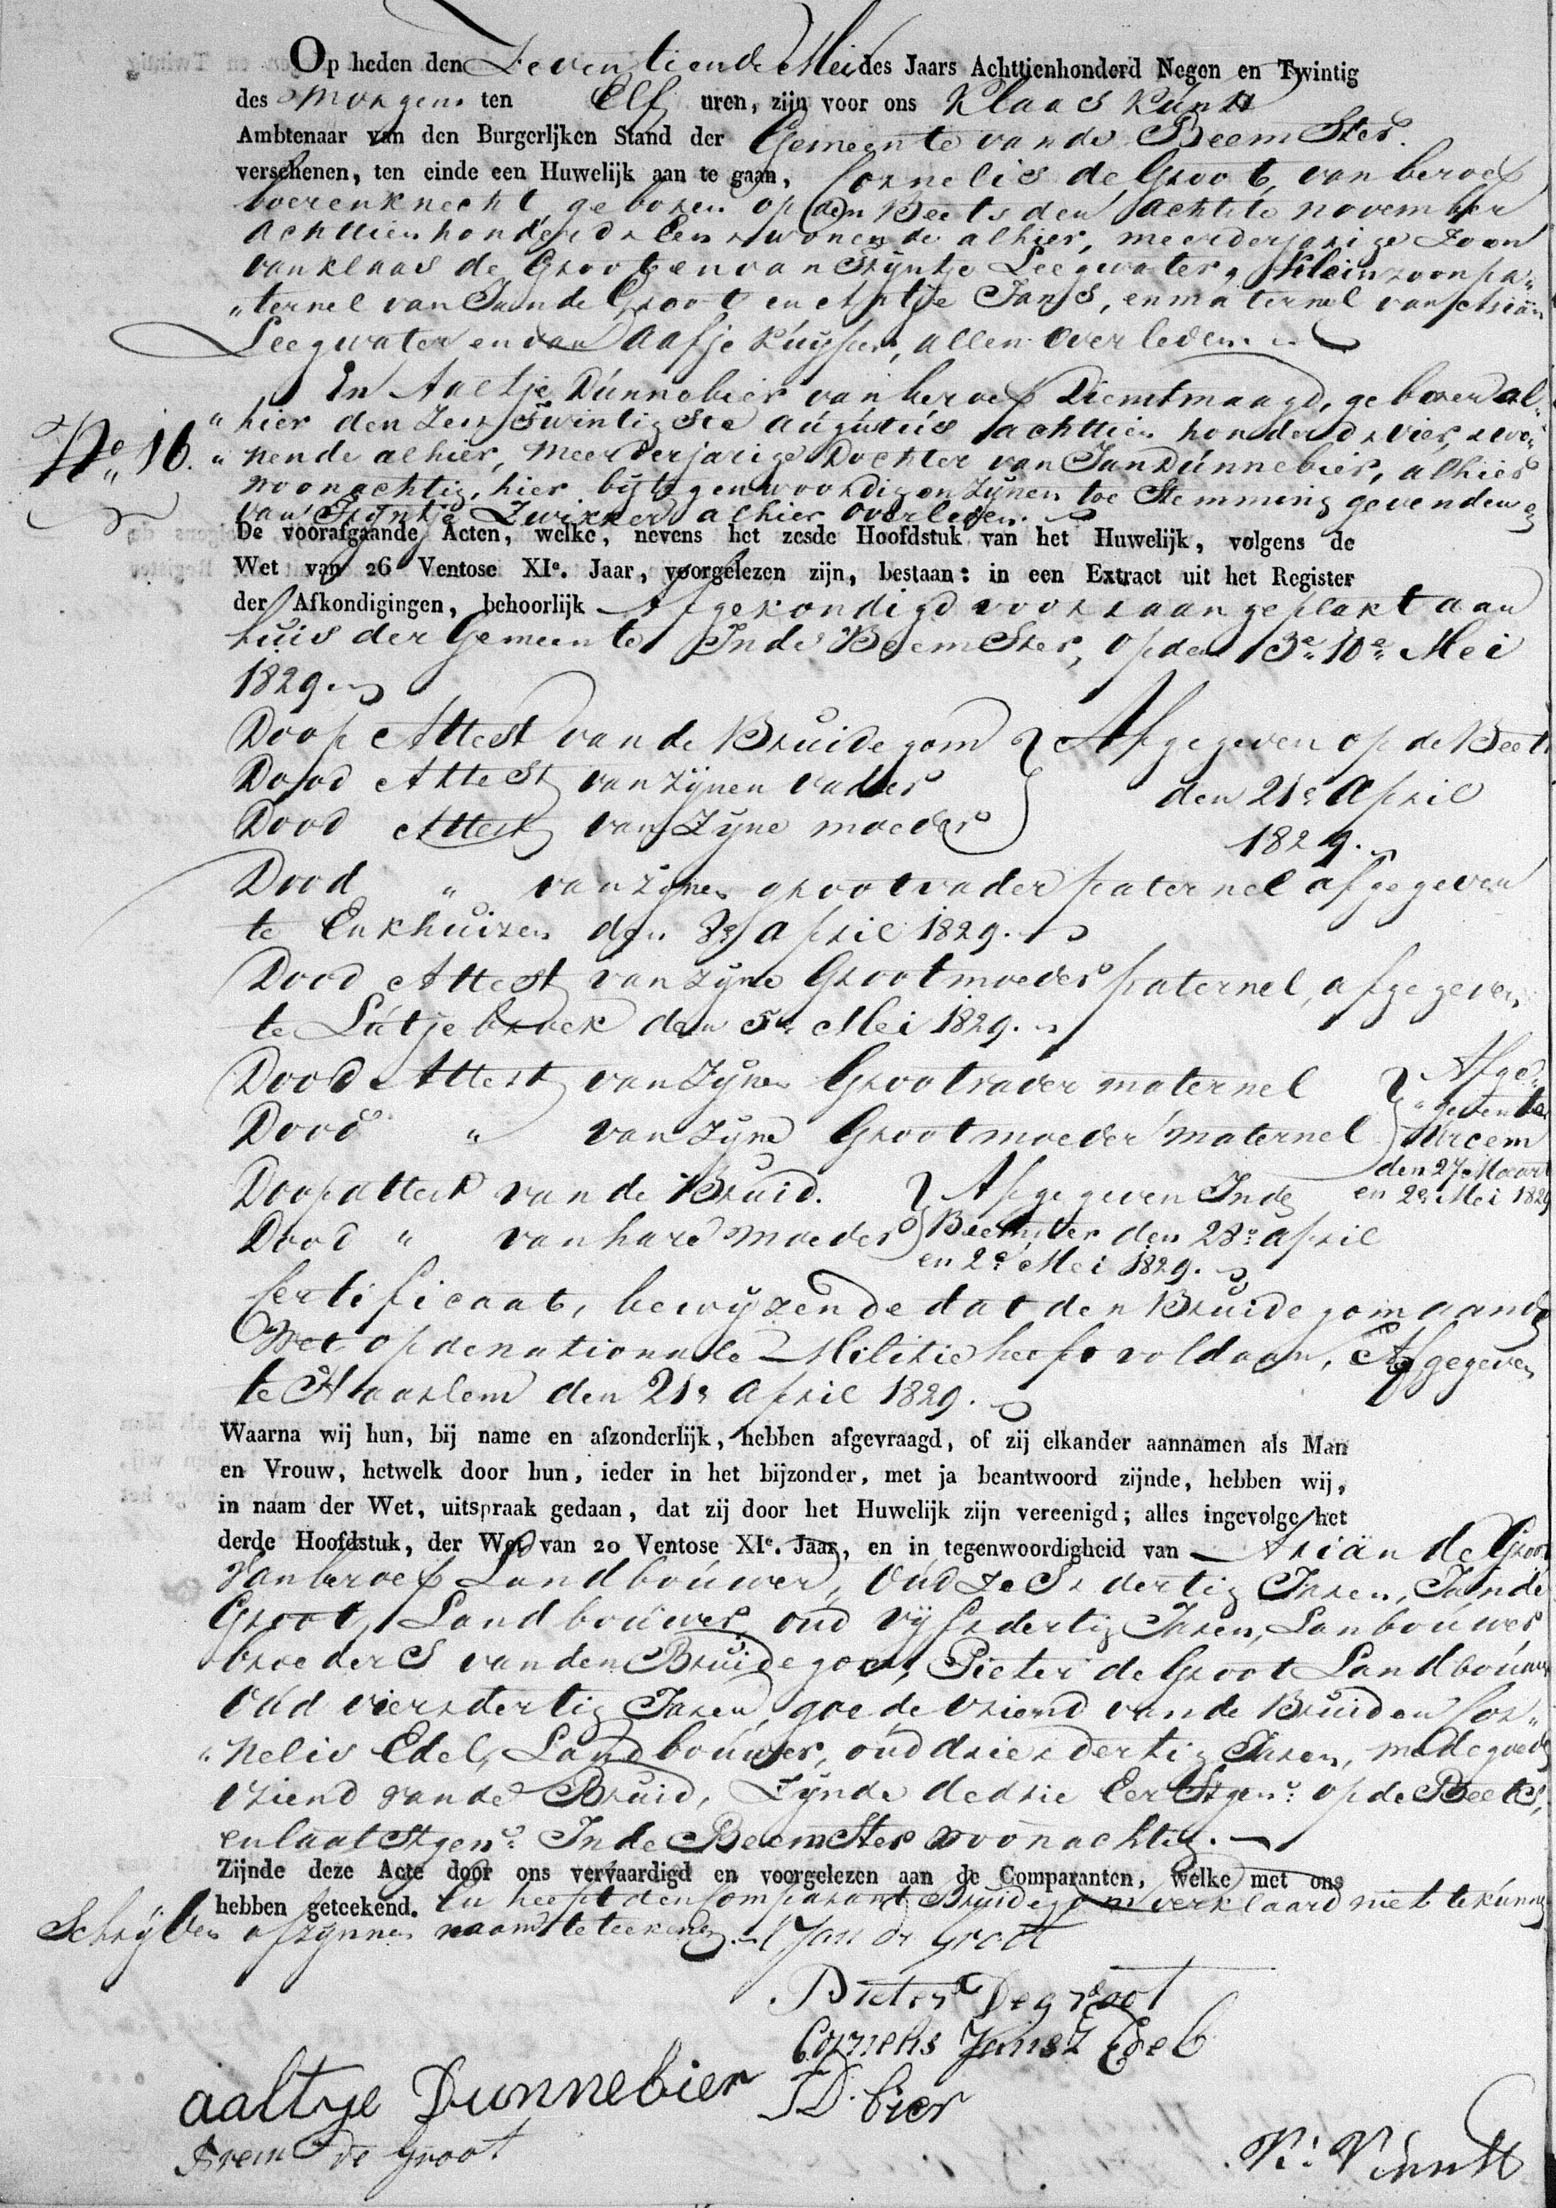 Op heden den Zeventiende Mei des Jaars Achttienhonderd Negen en Twintig
des Morgens ten Elf uren, zijn voor ons Klaas
Ambtenaar van den Burgerljken Stand der Gemeente van de Beemster.
verschenen, ten einde een Huwelijk aan te gaan, Cornelis de Groot, van beroef
boerenknecht, geboren op den Beets den achtste november
achttien honderd een, wonende alhier, meerderjarige Zoon
van Klaas de Groot en van Trijntje Leegwater, Kleinzoon pa-
"ternel van Jan de Groot en Antje Jans, en maternel van Ariän
Leegwater en van Aafje Kuijper, allen overleden.
En Aaltje Dúnnebier van beroef Dienstmaagd, geboren al-
"hier den Zes Twintigste augústús achttien honderd vier, wo-
N° 16. "nende alhier, meerderjarige Dochter van Jan Dúnnebier, alhier
woonachtig, hier bij tegenwoordig en Zijnen toe Stemming gevende en
van Trijntje Zwikker alhier overleden.
De voorafgaande Acten, welke, nevens het zesde Hoofdstuk van het Huwelijk, volgens de
Wet van 26 Ventose XIe. Jaar, voorgelezen zijn, bestaan: in een Extract uit het Register
der Afkondigingen, behoorlijk Afgekondigd voor & aangeplakt aan
huis der Gemeente In de Beemster, op den 3e. 10e. Mei
1829.
Doop Attest van de Bruidegom } Afgegeven op de Beets
Dood Attest van zijnen vader den 21e April
Dood Attest van Zijne moeder 1829.
Dood " van zijnen grootvader paternel afgegeven
te Enkhuizen den April 1829.
Dood Attest van Zijne Grootmoeder paternel, afgegeven
te Lútjebroek den 5e Mei 1829.
Dood Attest van Zijnen Grootvader maternel } Afge-
Dood " van Zijne Grootmoeder maternel "geven te
Urcem
den 27 Maart
Doop attest van de Bruid. } Afgegeven In de en 2e Mei 1829
Dood " van hare moeder Beemster den 28e April
en 2e Mei 1829.
Certificaat, bewijzende dat den Bruidegom aan de
Wet op de nationale Militie heeft voldaan, Afgegeven
te Haarlem den 21e April 1829.
Waarna wij hun, bij name en afzonderlijk, hebben afgevraagd, of zij elkander aannamen als Man
en Vrouw, hetwelk door hun, ieder in het bijzonder, met ja beantwoord zijnde, hebben wij,
in naam der Wet, uitspraak gedaan, dat zij door het Huwelijk zijn vereenigd; alles ingevolge het
derde Hoofdstuk, der Wet van 20 Ventose XIe. Jaar, en in tegenwoordigheid van Ariän de Groot
van beroef Landboúwer, Oúd zes & dertig Jaren, Jan de
Groot, Landboúwer oud vijf & dertig Jaren, Lanboúwer
broeders van den Bruidegom, Pieter de Groot Landboúwer
Oúd vier & dertig Jaren, goede vriend van de Bruid en Cor-
"nelis Edel, Landboúwer, oúd drie & dertig Jaren, mede goede
vriend van de Bruid, Zijnde de drie Eerstgen: op de Beets,
en laatstgen: In de Beemster woonachtig.
Zijnde deze Acte door ons vervaardigd en voorgelezen aan de Comparanten, welke met ons
hebben geteekend. En heeft den Comparant Bruidegom verklaard niet te kúnnen
Schrijven of zijnnen naam te teekenen. Jan de Groot
Pieter De groot
Cornelis Jansz Edel
aaltye Dunnebier J D. bier
Arem de Groot